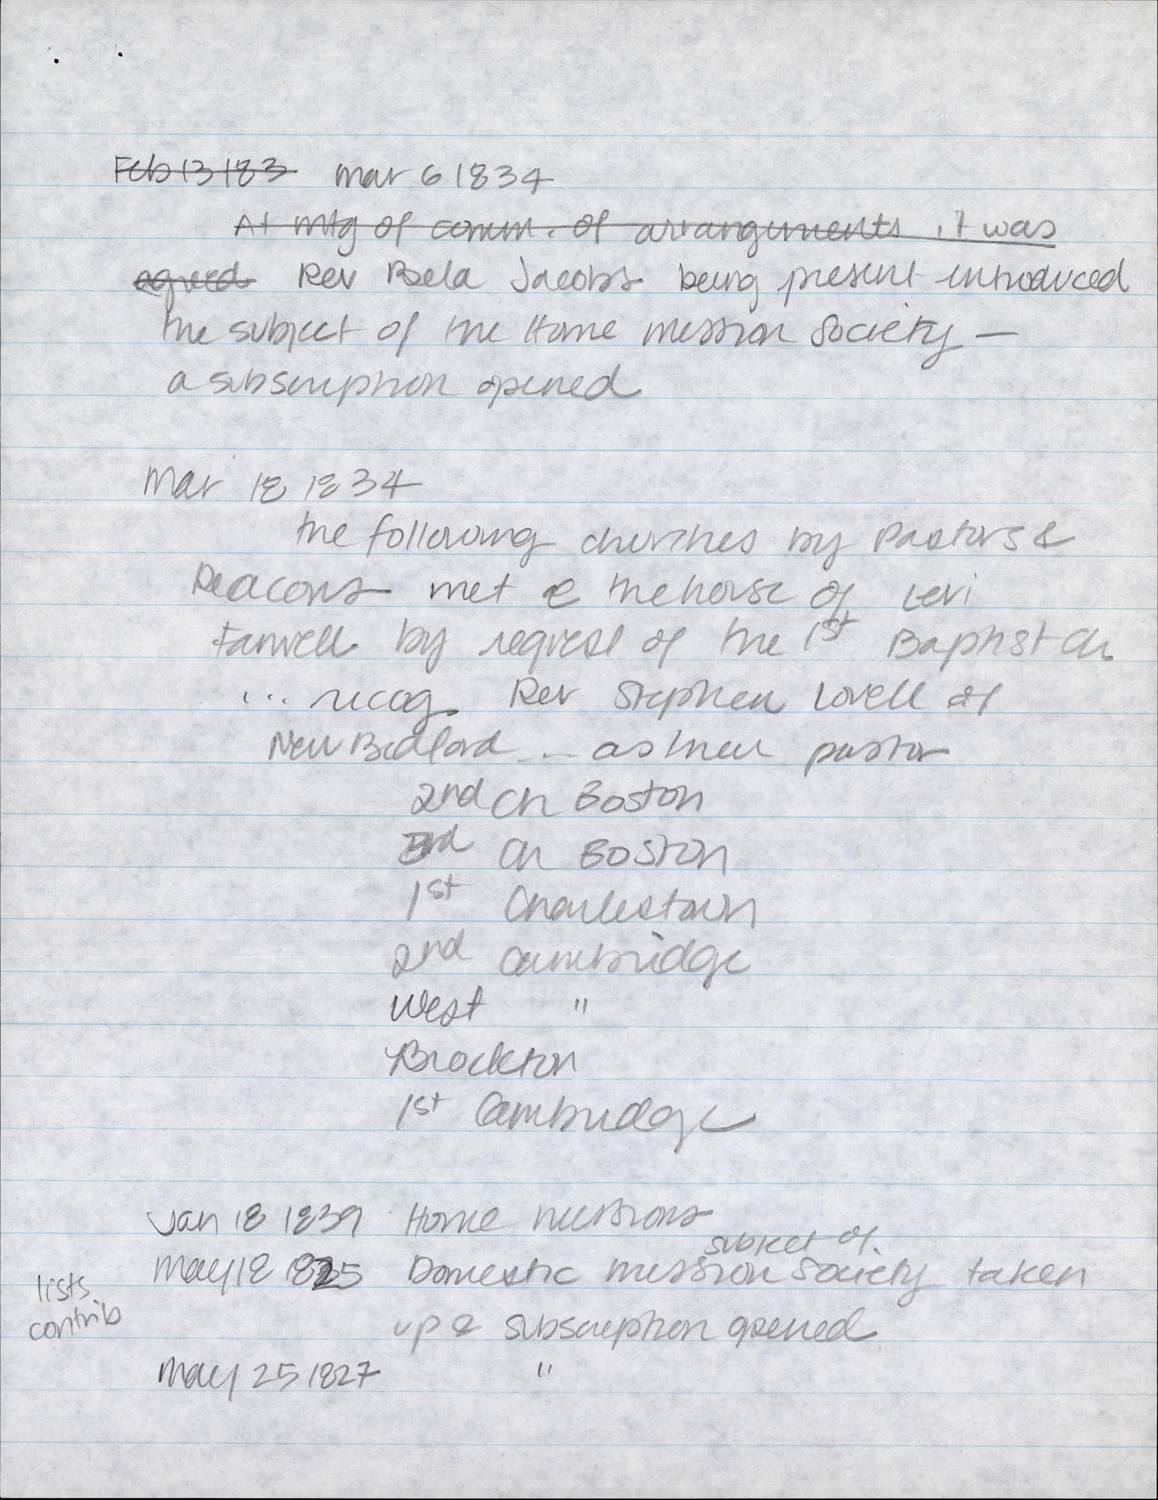 Feb 13 183 Mar 6 1834
At mtg of comm. of arrangements it was
agreed Rev Bela Jacobs being present introduced
the subject of the Home Mission Society —
a subscription opened
Mar 18 1834
the following churches by Pastors &
Deacons met @ the house of Levi
Farwell by request of the 1st Baptist Ch
... recog. Rev Stephen Lovell of
New Bedford ... as their pastor
2nd Ch Boston
3rd Ch Boston
1st Charlestown
2nd Cambridge
West "
Brockton
1st Cambridge
Jan 18 1839 Home missions
subject of
May 18 1825 Domestic Mission Society taken
lists
contrib
up & subscription opened
May 25 1827 "